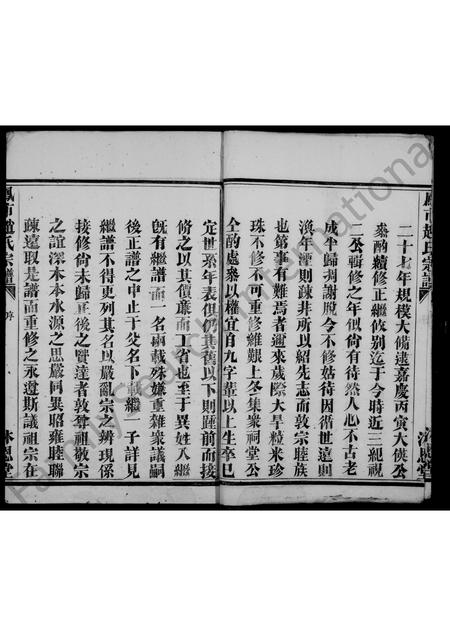 二十七年規模大備逮嘉慶丙寅大俠公
恭酌續修正繼攸別迄于今時近三紀視
二公輯修之年似尙有待然人心不古老
成半歸凋謝脫今不修姑待因循世遠則
湮年湮則疎非所以紹先志而敦宗睦族
也第事有難焉者邇來歲際大旱粒米珍
珠不修不可重修維艱上冬集衆祠堂公
仝酌處叅以權宜自九字輩以上生卒已
定世系年表俱仍其舊以下則踵前而接
修之以其價亷而工省也至于異姓入繼
旣有繼譜而一名兩載殊嫌重雜衆議嗣
後正譜之中止于父名下載繼一子詳見
繼譜不得更列其名以嚴亂宗之辨現係
接修尙未歸正後之賢達者敦尊祖敬宗
之誼深木本水源之思嚴同異昭雍睦聯
疎遠取是譜而重修之永遵斯議祖宗在
鳳市趙氏宗譜
序
FamilySearch International